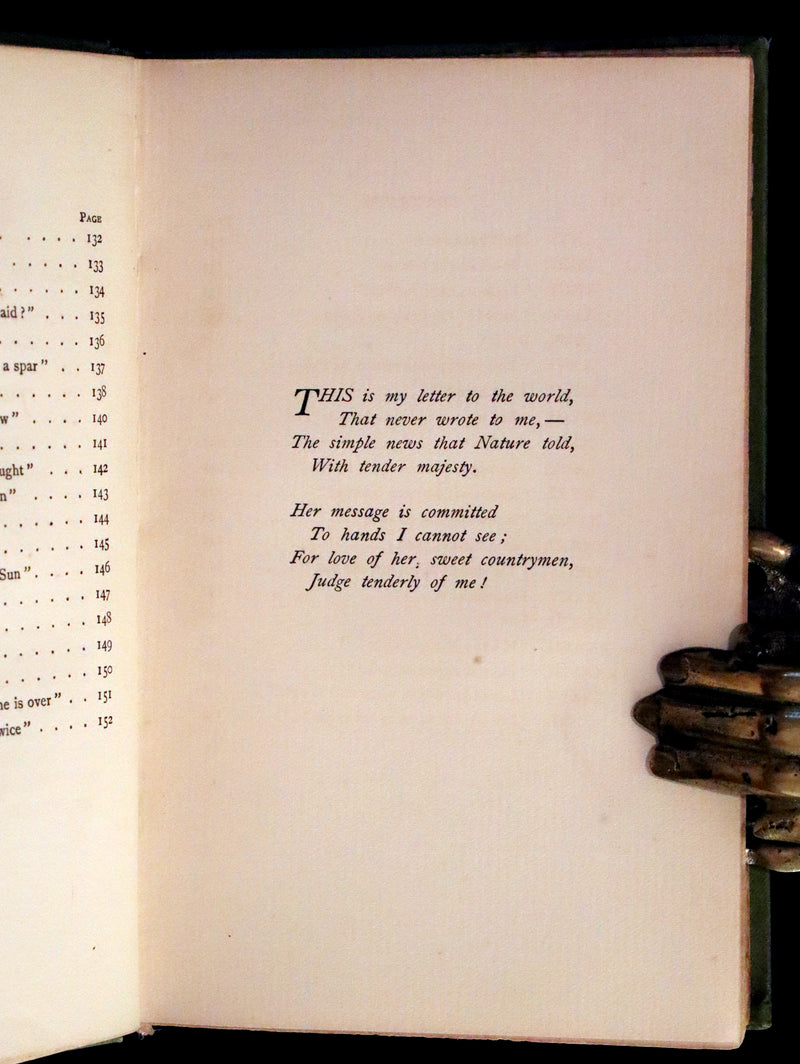 PAGE
. . . . . 132
. . . . . . 133
. . . . . . 134
aid?” . . . 135
. . . . . . 136
a spar” . . 137
. . . . . . 138
w” . . . . 140
. . . . . . 141
ught” . . . 142
n” . . . . 143
. . . . . . 144
. . . . . . 145
Sun” . . . . 146
. . . . . . 147
. . . . . . 148
. . . . . . 149
. . . . . . 150
ne is over” . . 151
wice” . . . . 152
THIS is my letter to the world,
That never wrote to me, —
The simple news that Nature told,
With tender majesty.
Her message is committed
To hands I cannot see ;
For love of her, sweet countrymen,
Judge tenderly of me !